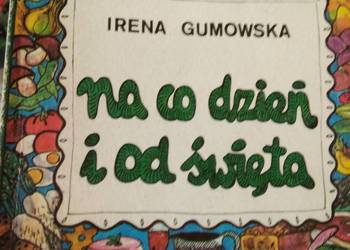 IRENA GUMOWSKA
na co dzień
i od święta